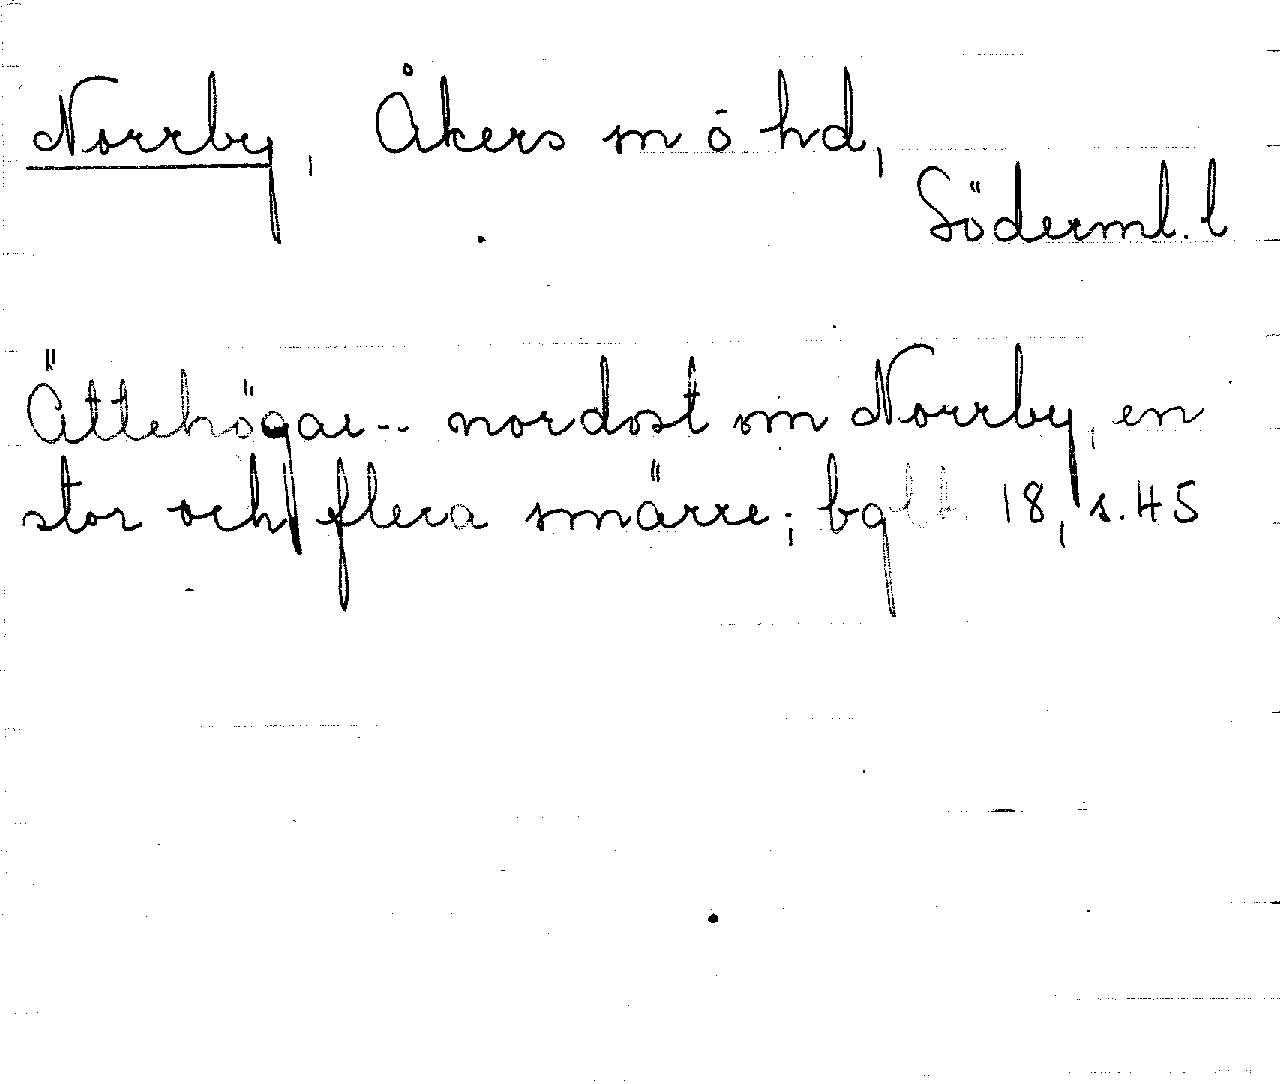 Norrby, Åkers sn o hd,
Söderml. l
Ättehögar -- nordost om Norrby, en
stor och flera smärre; bgtl. 18, s. 45